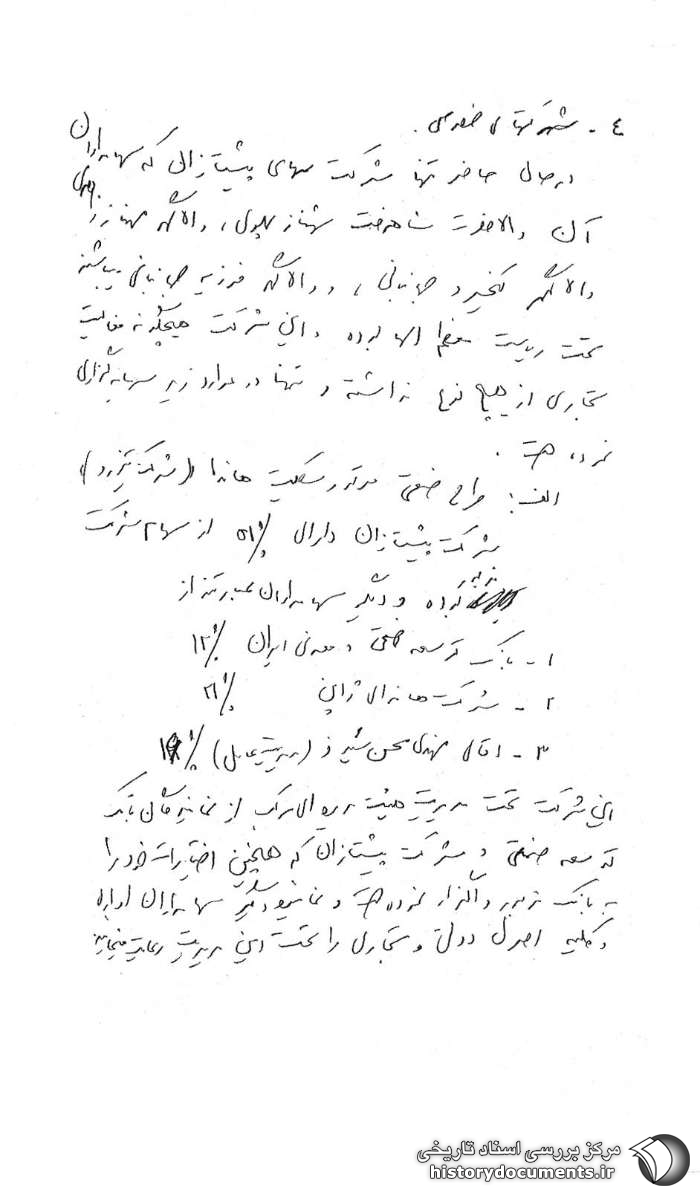 ٤ - شرکتهای خصوصی .
در حال حاضر تنها شرکت سهامی پیشتازان که سهامداران
آن والاحضرت شاهدخت شهناز پهلوی ، والاگهر مهناز زاهدی
والاگهر کیخسرو جهانبانی ، و والاگهر فوزیه جهانبانی میباشند
تحت ریاست معظم الها بوده و این شرکت هیچگونه فعالیت
تجاری از هیچ نوع نداشته و تنها در موارد زیر سرمایه‌گزاری
نموده است .
الف : طراحی صنعتی موتورسیکلیت هاندا (شرکت تیزرو)
شرکت پیشتازان دارای ٪۵۱ از سهام شرکت
مزبور بوده و دیگر سهامداران عبارتند از
۱ - بانک توسعه صنعتی و معدنی ایران ٪۱۲
۲ - شرکت هاندای ژاپن ٪۲۱
۳ - آقای مهندس محسن (مدیریت عامل)
این شرکت تحت مدیریت هیئت مدیره ای مرکب از نمایندگان بانک
توسعه صنعتی و شرکت پیشتازان که همچنین اختیارات خود را
به بانک مزبور واگزار نموده است و نماینده دیگر سهامداران اداره
و کلیه اصول دولتی و تجاری را تحت این مدیریت رعایت مینماید
مرکز بررسی اسناد تاریخی
historydocuments.ir